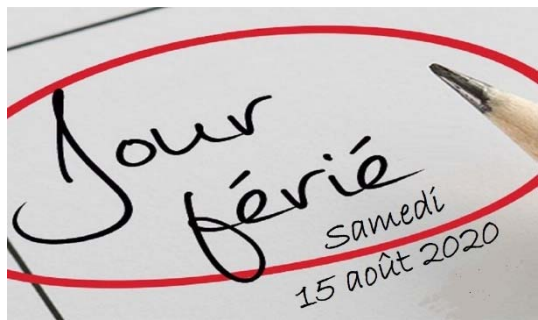 Jour
férié
samedi
15 août 2020